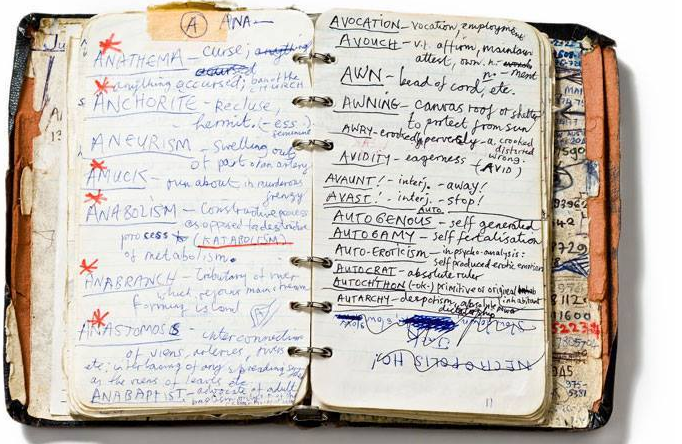 A ANA-
ANATHEMA - curse; anything
accursed
anything accursed; ban of the CHURCH
ANCHORITE - Recluse,
hermit. (-ess). feminine
ANEURISM - Swelling out
of part of an artery
AMUCK - run about in murderous
frenzy
ANABOLISM - Constructive process
as opposed to destructive
process (KATABOLISM)
of metabolism.
ANABRANCH - tributary of river
which rejoins main stream
forming island
ANASTOMOSIS interconnection
of viens, arteries, rivers
etc; interlacing of any spreading
as the viens of leaves etc
ANABAPTIST - advocate of adult
baptism
AVOCATION - vocation, employment
AVOUCH - v.t. affirm, maintain
attest, own. n. -ment
AWN - bead of cord, etc.
AWNING - canvas roof or shelter
to protect from sun
AWRY - crookedly, pervesly - a. crooked
distorted
wrong.
AVIDITY - eagerness (AVID)
AVAUNT! - interj. - away!
AVAST! - interj. - stop!
AUTO
AUTOGENOUS - self generated
AUTOGAMY - self fertalisation
AUTO-EROTICISM - in psycho-analysis:
self produced erotic emotions
AUTOCRAT - absolute ruler
AUTOCHTHON (-ok-) primitive or original
inhabitant
AUTARCHY - despotism, absolute power
dictatorship
NECROPOLIS HOL
11